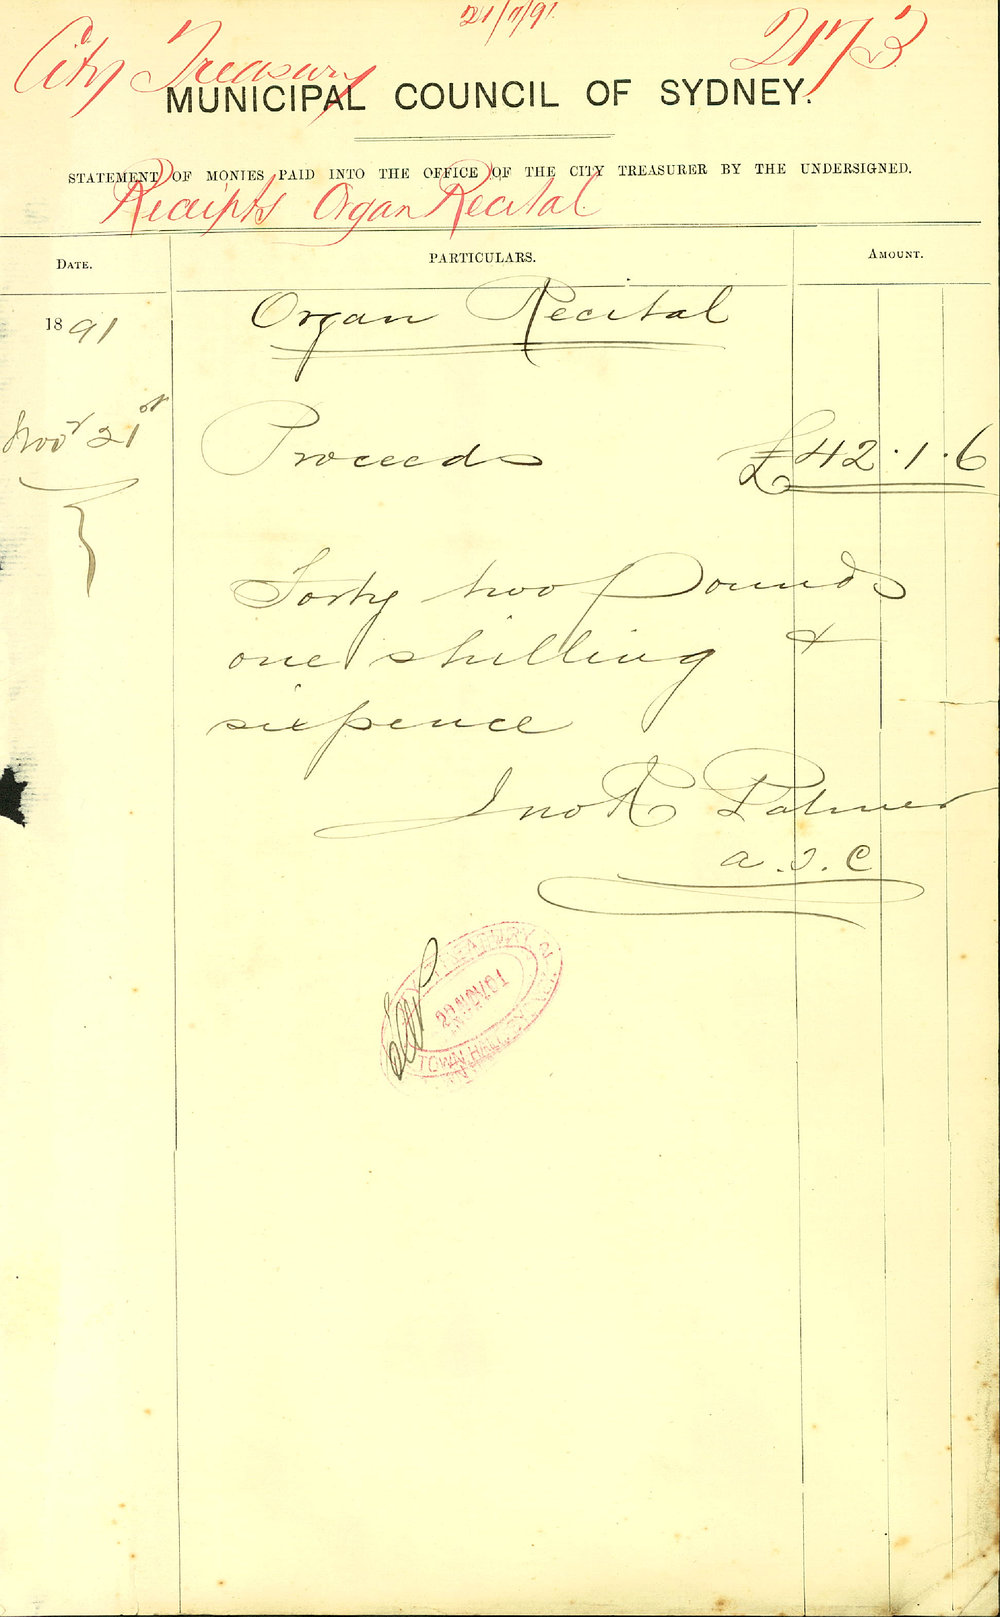 21/11/91
2173
City Treasury
MUNICIPAL COUNCIL OF SYDNEY.
STATEMENT OF MONIES PAID INTO THE OFFICE OF THE CITY TREASURER BY THE UNDERSIGNED.
Receipts Organ Recital
DATE. PARTICULARS. AMOUNT.
1891 Organ Recital
Novr 21st Proceeds £42.1.6
Forty two pounds
one shilling &
sixpence
Jno R Palmer
a.T.C
TREASURY
TOWN HALL SYDNEY